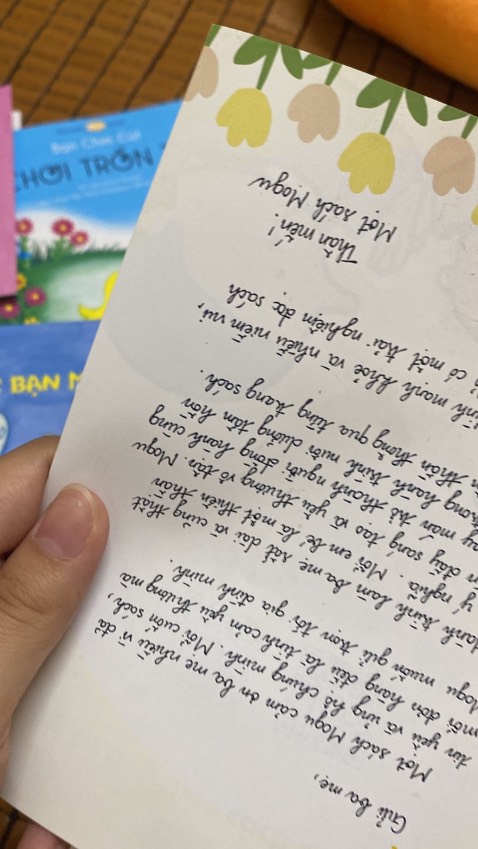 CHƠI TRỐN
BẠN
Gửi ba mẹ,
Mọt sách Mogu cảm ơn ba mẹ nhiều vì đã
tin yêu và ủng hộ chúng mình. Mỗi cuốn sách,
mỗi đơn hàng đều là tình cảm yêu thương mà
Mogu muốn gửi trọn tới gia đình mình.
hành trình làm ba mẹ rất dài và cũng thật
ý nghĩa. Mỗi em bé là một thiên thần
đầy sáng tạo và yêu thương vô tận. Mogu
mắn trở thành người đồng hành cùng
trong hành trình nuôi dưỡng tâm hồn
thần thông qua từng trang sách.
mạnh khỏe và nhiều niềm vui,
có một trải nghiệm đọc sách
Thân mến!
Mọt sách Mogu